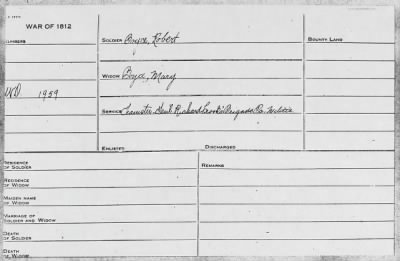 WAR OF 1812
NUMBERS
SOLDIER Boyce, Robert
BOUNTY LAND
WIDOW Boyd, Mary
WO 1959
SERVICE Teamster, Genl. Richard Crook's Brigade Pa. Militia
ENLISTED DISCHARGED
RESIDENCE
OF SOLDIER
REMARKS
RESIDENCE
OF WIDOW
MAIDEN NAME
OF WIDOW
MARRIAGE OF
SOLDIER AND WIDOW
DEATH
OF SOLDIER
DEATH
OF WIDOW